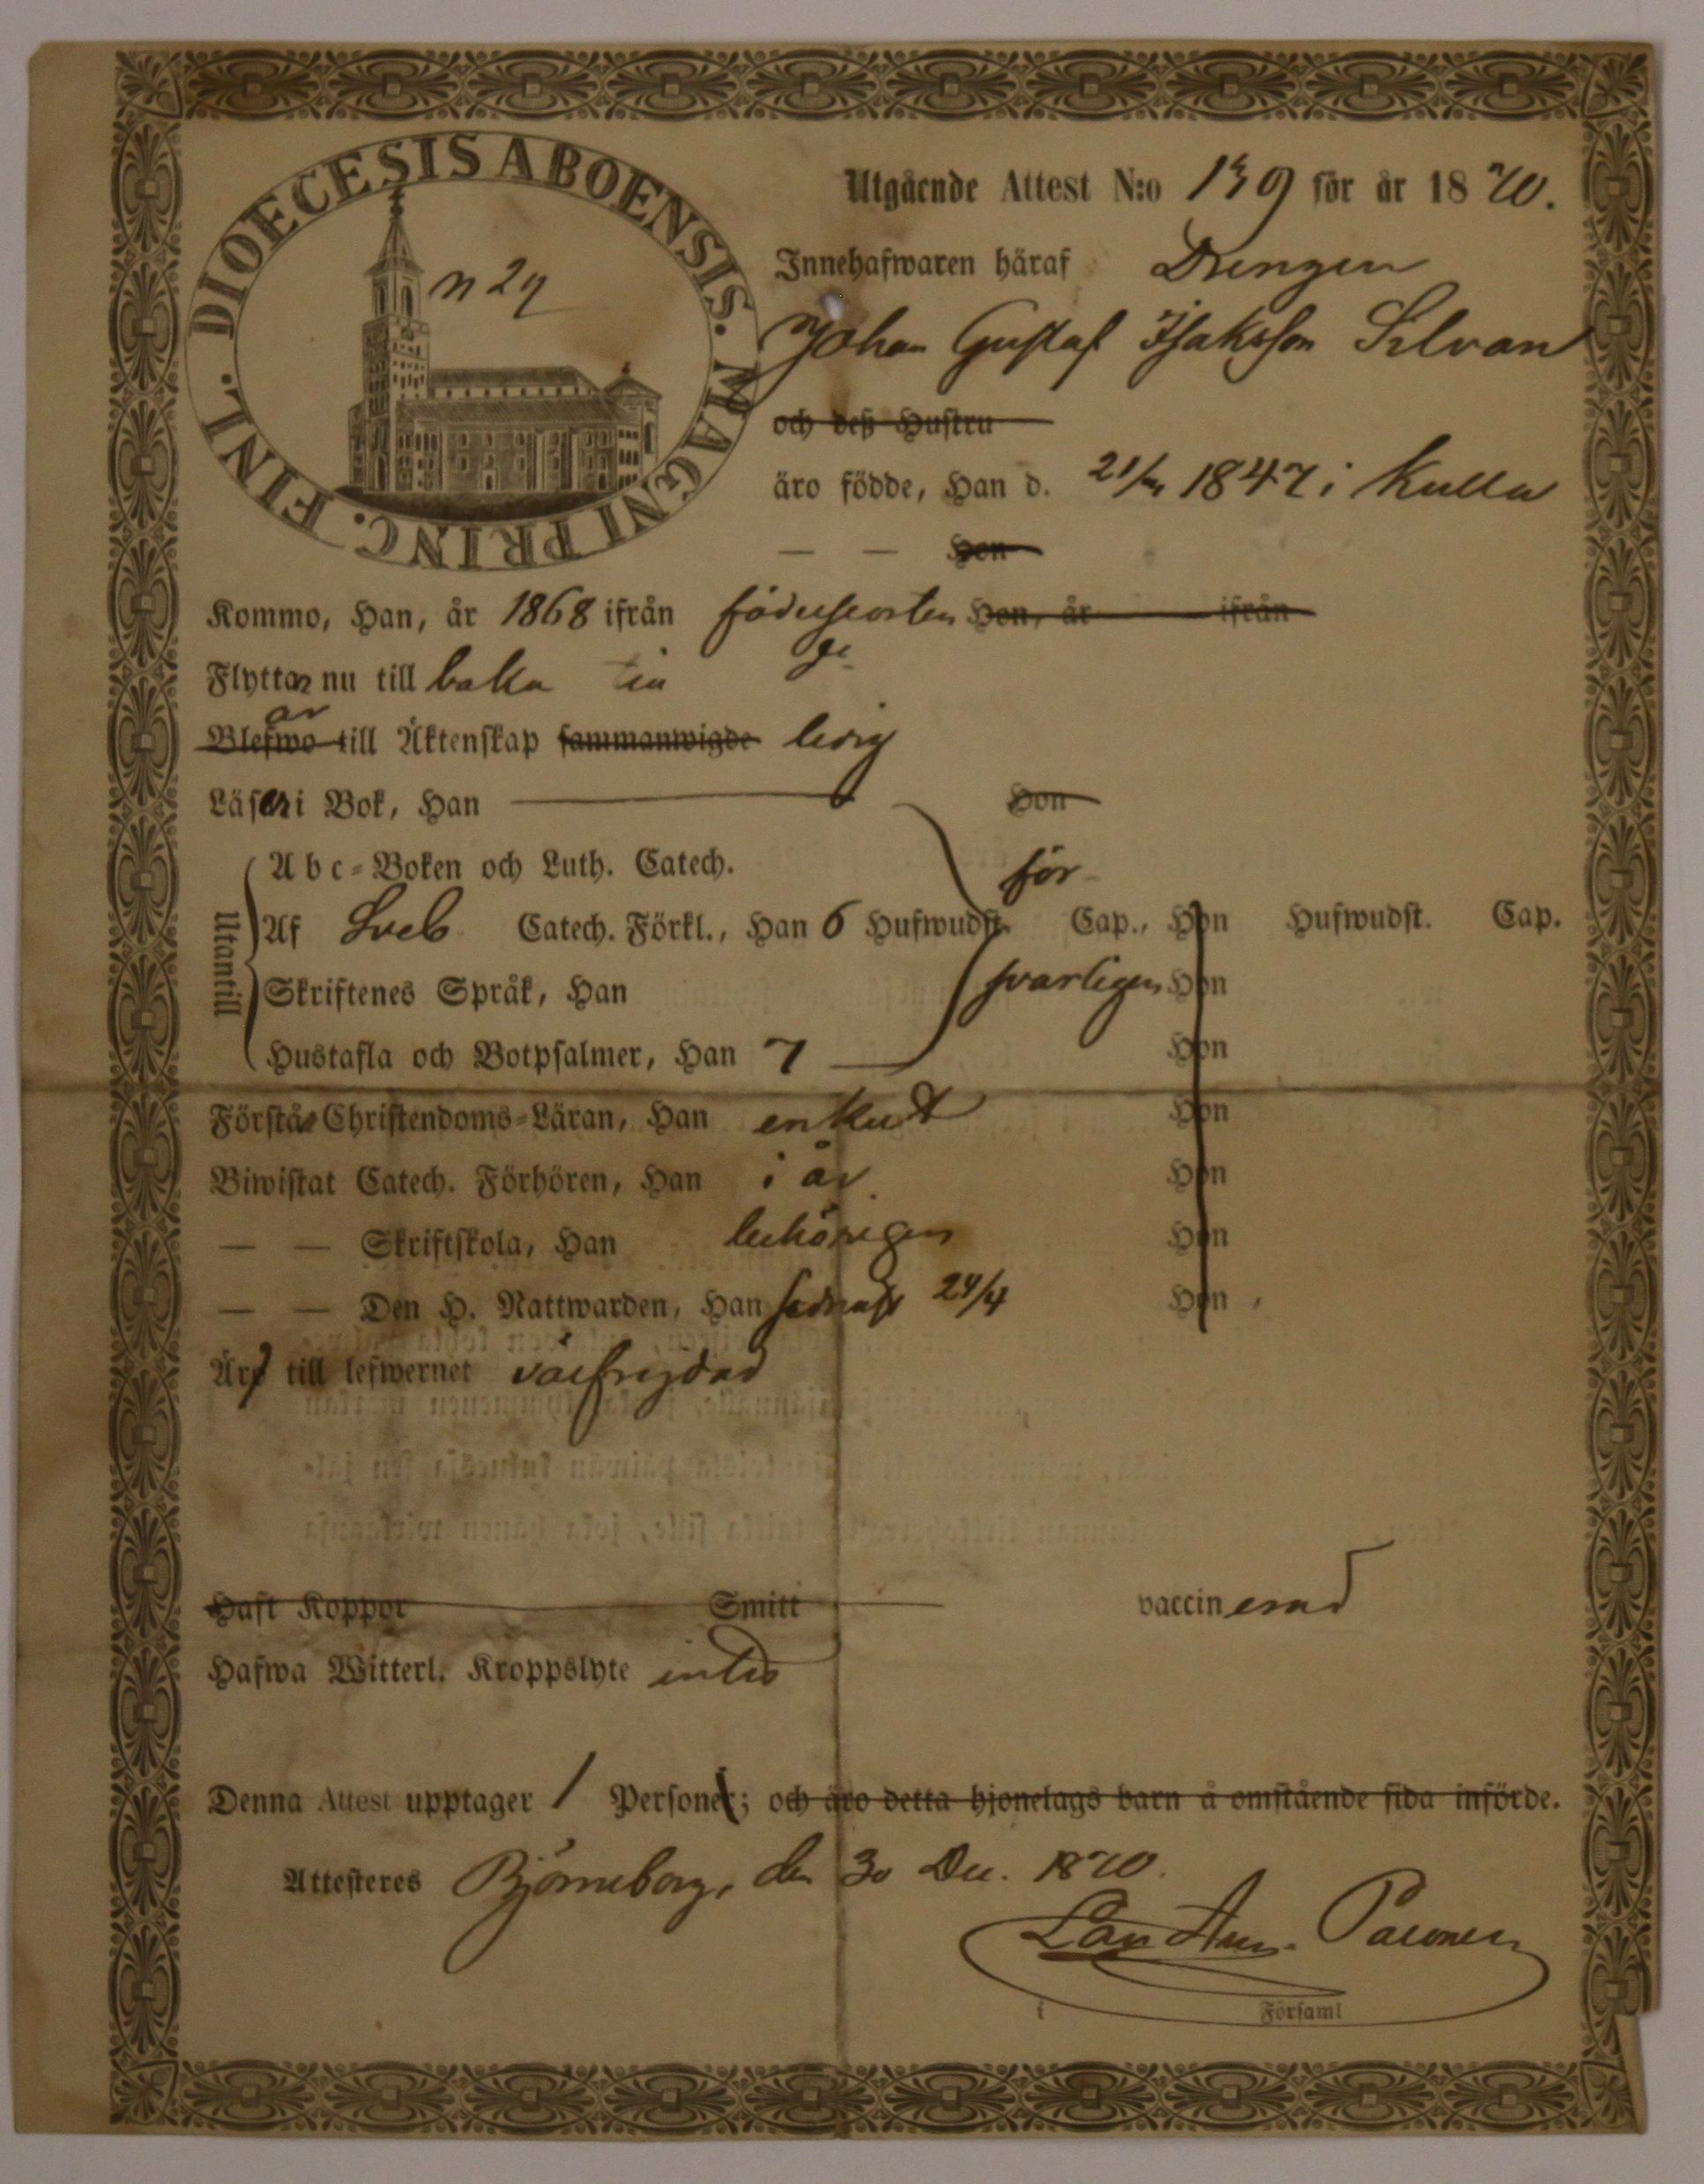 DIOECESIS ABOENSIS. MAGNI PRINC. FINL.
n 29
Utgående Attest N:o 139 för år 1870.
Innehafwaren häraf Drengen
Johan Gustaf Isaksson Silvan
och deß Hustru
äro födde, Han d. 21/ 1847 i Kulla
— — Hon
Kommo, Han, år 1868 ifrån födelseorten Hon, år ifrån
Flyttar nu till baka till
är
Blefwo till Äktenskap sammanwigde ledig
Läser i Bok, Han Hon
Abc-Boken och Luth. Catech. för-
Utantill
Af Sveb Catech. Förkl., Han 6 Hufwudst. Cap., Hon Hufwudst. Cap.
Skriftenes Språk, Han svarligen Hon
Hustafla och Botpsalmer, Han 7 Hon
Förstår Christendoms-Läran, Han enkelt Hon
Biwistat Catech. Förhören, Han i år. Hon
— — Skriftskola, Han behörigen Hon
— — Den H. Nattwarden, Han sednast 24/4 Hon
Är till lefwernet välfrejdad
Haft Koppor Smitt vaccinerad
Hafwa Witterl. Kroppslyte intet
Denna Attest upptager 1 Personer; och äro detta hjonelags barn å omstående sida införde.
Attesteres Björneborg, den 30 Dec. 1870.
Palonen
i Församl